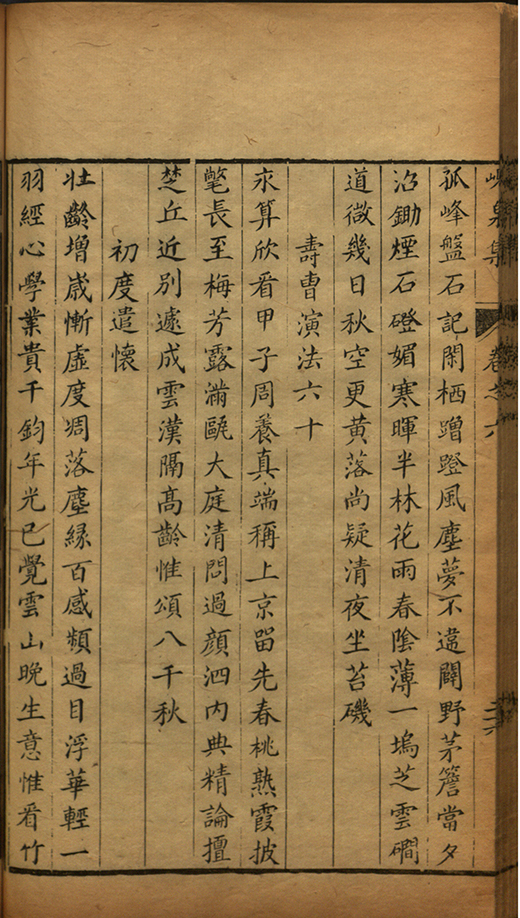 卷之六
孤峰盤石記閑栖蹭蹬風塵夢不違闢野茅簷當夕
沿鋤煙石磴媚寒暉半林花雨春陰薄一塢芝雲磵
道微幾日秋空更黃落尚疑清夜坐苔磯
壽曹演法六十
永算欣看甲子周養真端稱上京畱先春桃熟霞披
氅長至梅芳露滿甌大庭清問過顏泗內典精論擅
楚丘近別遽成雲漢隔高齡惟頌八千秋
初度遣懷
壯齡增歲慚虛度凋落塵緣百感頻過目浮華輕一
羽經心學業貴千鈞年光已覺雲山晚生意惟看竹